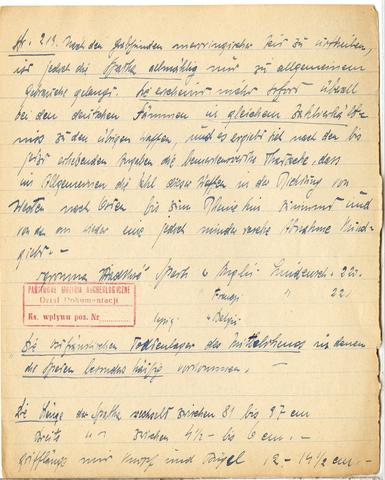 Nr. 219. Nach den Grabfunden merovingischer Zeit zu urtheilen,
ist jedoch die Spatha allmählig nur zu allgemeinem
Gebrauche gelangt. Sie erscheint mehr sofort überall
bei den deutschen Stämmen in gleichem Zahlverhält-
niss zu den übrigen Waffen, und es ergiebt sich nach den bis
jetzt erhobenden Angaben die bemerkenswerthe Thatsache, dass
im Allgemeinen die Zahl dieser Waffen in der Richtung von
Westen nach Osten bis zum Rheine hin zunimmt und
von da an wieder eine jedoch minder rasche Abnahme kund-
giebt. -
w Anglii - Lindensch. 222.
Francji " 221
Belgii
PAŃSTWOWE MUZEUM ARCHEOLOGICZNE
Dział Dokumentacji
Ks. wpływu poz. Nr
Die fränkischen Todtenlager des Mittelrheins in denen
die Speien besonders häufig vorkommen. -
Die Länge der Spatha wechselt zwischen 81 bis 97 cm
Breite " " zwischen 4½ - bis 6 cm. -
Grifflänge mit Knopf und Bügel 12 - 14½ cm. -